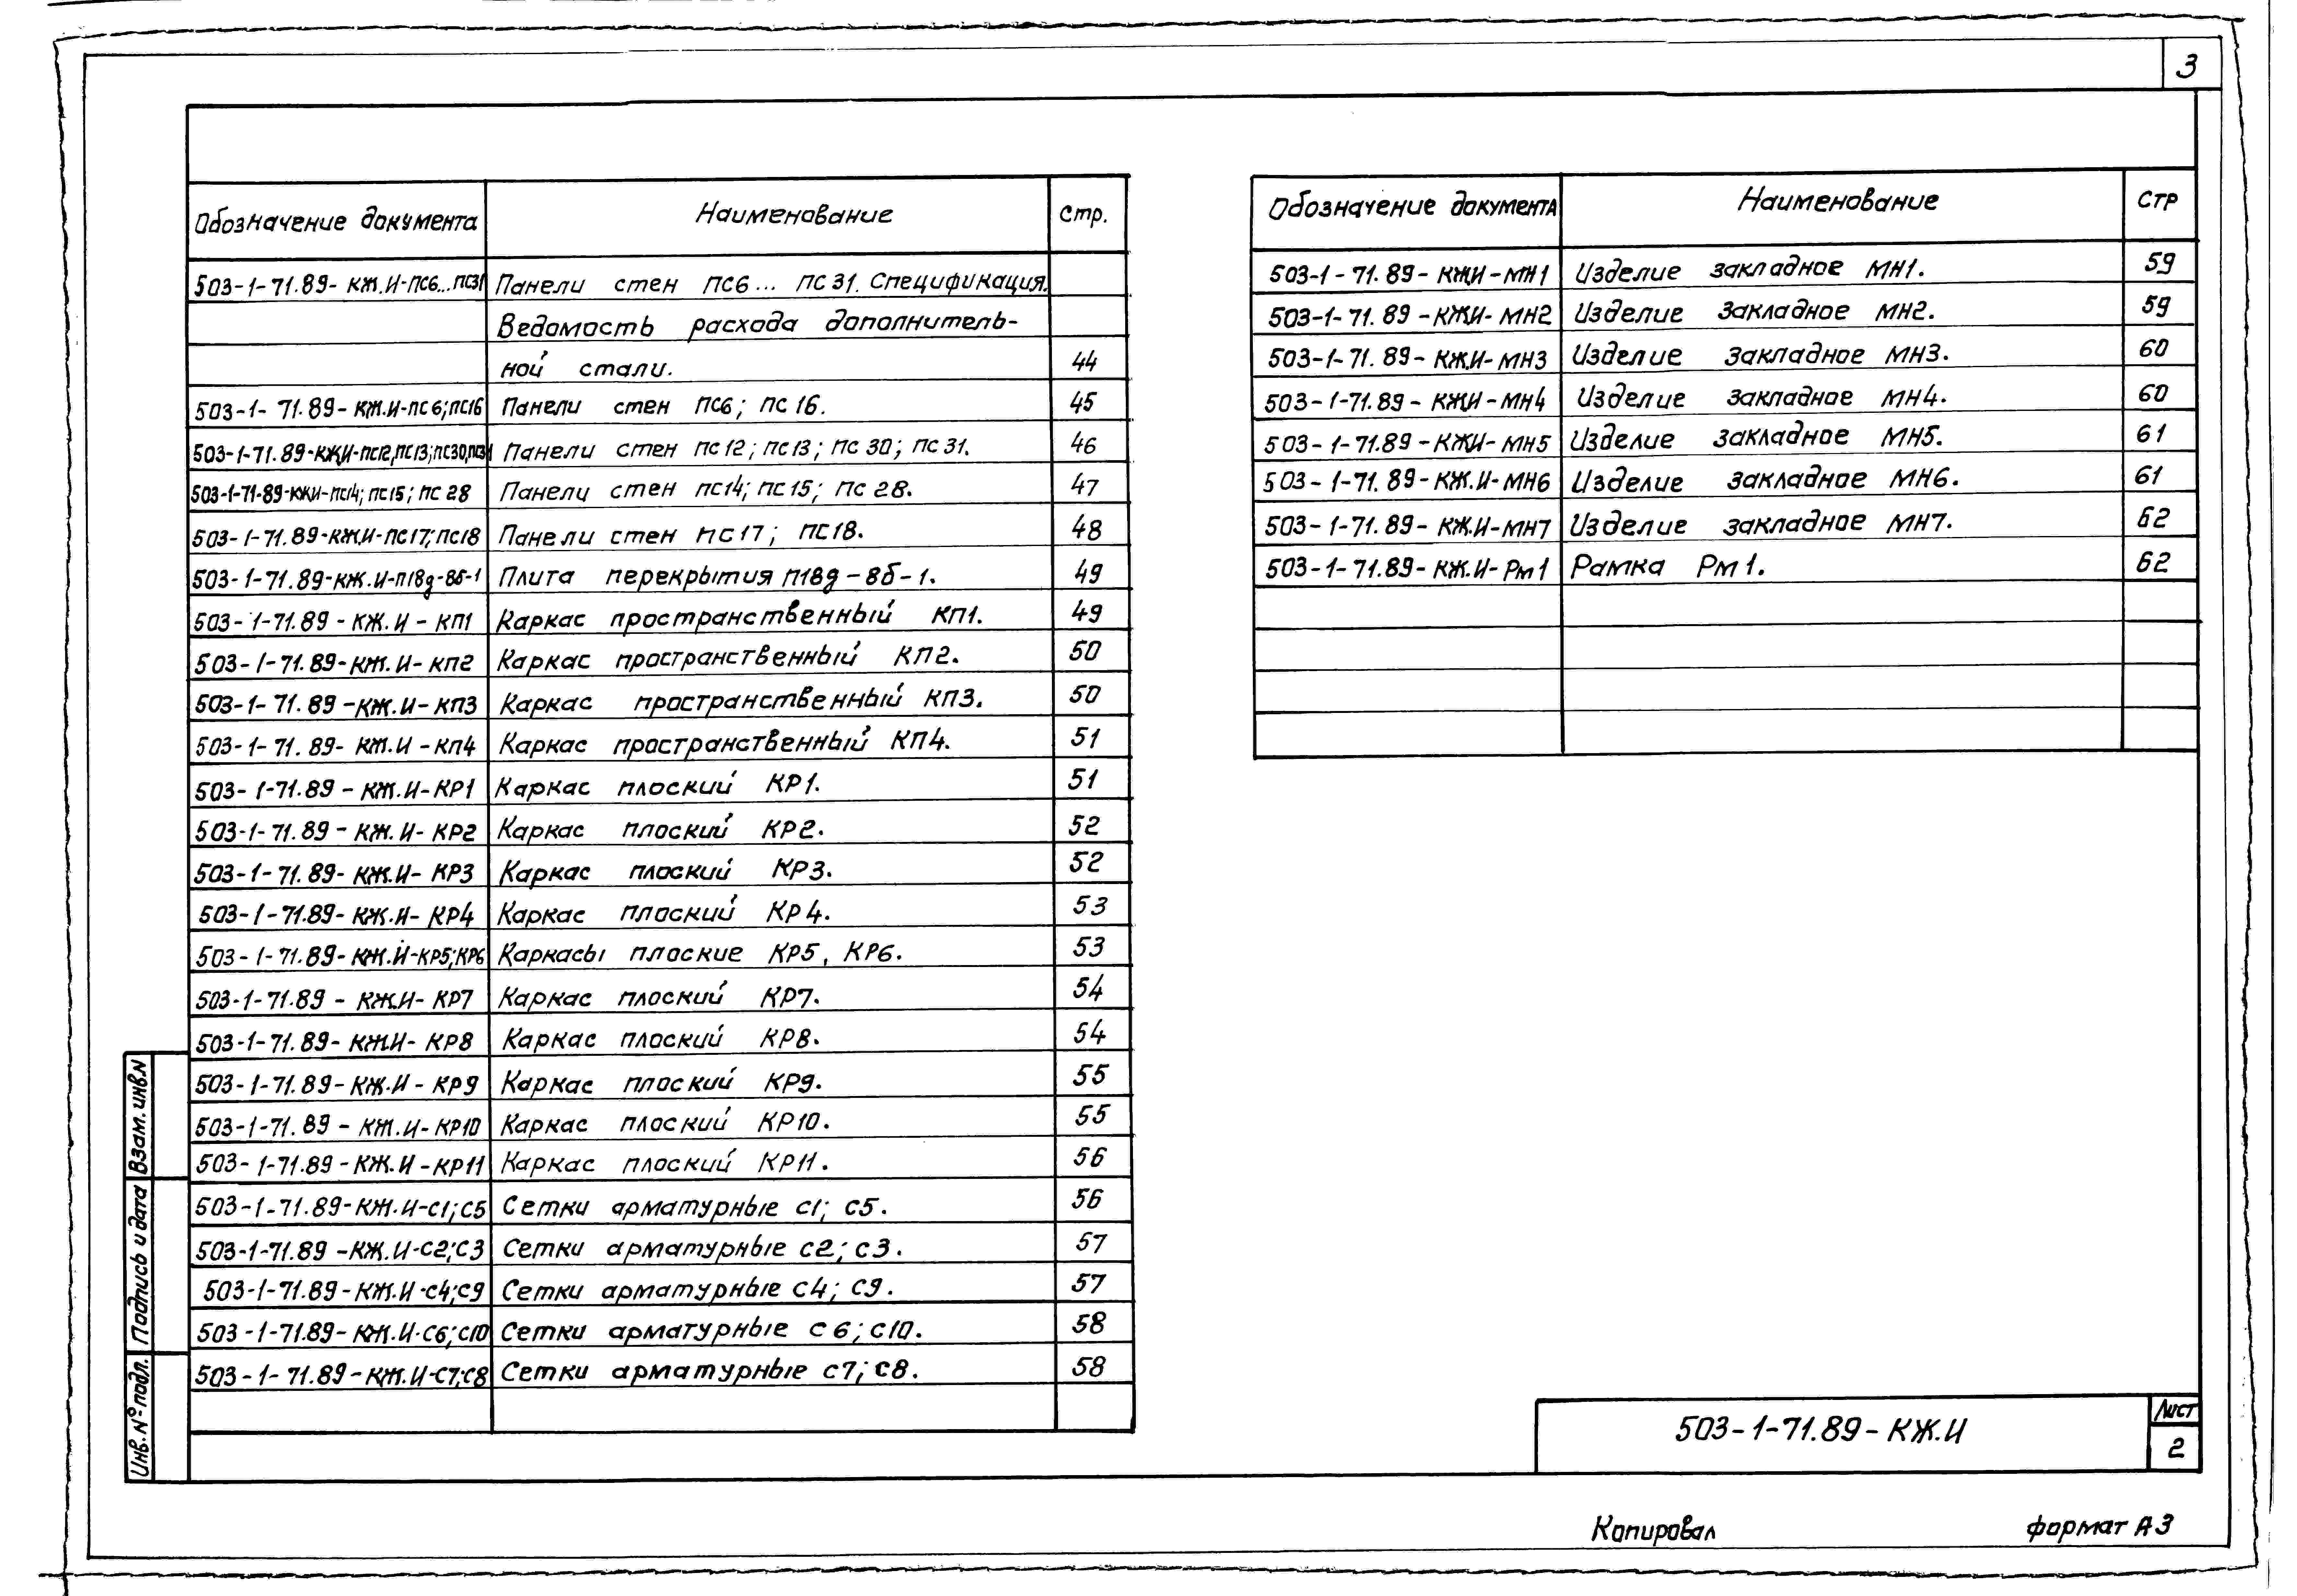 3
Обозначение документа Наименование Стр.
503-1-71.89-КЖ.И-ПС6...ПС31 Панели стен ПС6... ПС31. Спецификация.
Ведомость расхода дополнитель-
ной стали. 44
503-1-71.89-КЖ.И-ПС6;ПС16 Панели стен ПС6; ПС16. 45
503-1-71.89-КЖ.И-ПС12,ПС13;ПС30,ПС31 Панели стен ПС12; ПС13; ПС30; ПС31. 46
503-1-71-89-КЖИ-ПС14; ПС15; ПС28 Панели стен ПС14; ПС15; ПС28. 47
503-1-71.89-КЖ.И-ПС17;ПС18 Панели стен ПС17; ПС18. 48
503-1-71.89-КЖ.И-П18д-8б-1 Плита перекрытия П18д-8б-1. 49
503-1-71.89-КЖ.И-КП1 Каркас пространственный КП1. 49
503-1-71.89-КЖ.И-КП2 Каркас пространственный КП2. 50
503-1-71.89-КЖ.И-КП3 Каркас пространственный КП3. 50
503-1-71.89-КЖ.И-КП4 Каркас пространственный КП4. 51
503-1-71.89-КЖ.И-КР1 Каркас плоский КР1. 51
503-1-71.89-КЖ.И-КР2 Каркас плоский КР2. 52
503-1-71.89-КЖ.И-КР3 Каркас плоский КР3. 52
503-1-71.89-КЖ.И-КР4 Каркас плоский КР4. 53
503-1-71.89-КЖ.И-КР5;КР6 Каркасы плоские КР5, КР6. 53
503-1-71.89-КЖ.И-КР7 Каркас плоский КР7. 54
503-1-71.89-КЖ.И-КР8 Каркас плоский КР8. 54
503-1-71.89-КЖ.И-КР9 Каркас плоский КР9. 55
503-1-71.89-КЖ.И-КР10 Каркас плоский КР10. 55
503-1-71.89-КЖ.И-КР11 Каркас плоский КР11. 56
503-1-71.89-КЖ.И-С1;С5 Сетки арматурные С1; С5. 56
503-1-71.89-КЖ.И-С2;С3 Сетки арматурные С2; С3. 57
503-1-71.89-КЖ.И-С4;С9 Сетки арматурные С4; С9. 57
503-1-71.89-КЖ.И-С6;С10 Сетки арматурные С6; С10. 58
503-1-71.89-КЖ.И-С7;С8 Сетки арматурные С7; С8. 58
Обозначение документа Наименование Стр
503-1-71.89-КЖ.И-МН1 Изделие закладное МН1. 59
503-1-71.89-КЖ.И-МН2 Изделие закладное МН2. 59
503-1-71.89-КЖ.И-МН3 Изделие закладное МН3. 60
503-1-71.89-КЖ.И-МН4 Изделие закладное МН4. 60
503-1-71.89-КЖ.И-МН5 Изделие закладное МН5. 61
503-1-71.89-КЖ.И-МН6 Изделие закладное МН6. 61
503-1-71.89-КЖ.И-МН7 Изделие закладное МН7. 62
503-1-71.89-КЖ.И-Рм1 Рамка Рм1. 62
Взам. инв.N
Подпись и дата
Инв. №подл.
503-1-71.89-КЖ.И
Лист
2
Копировал формат А3